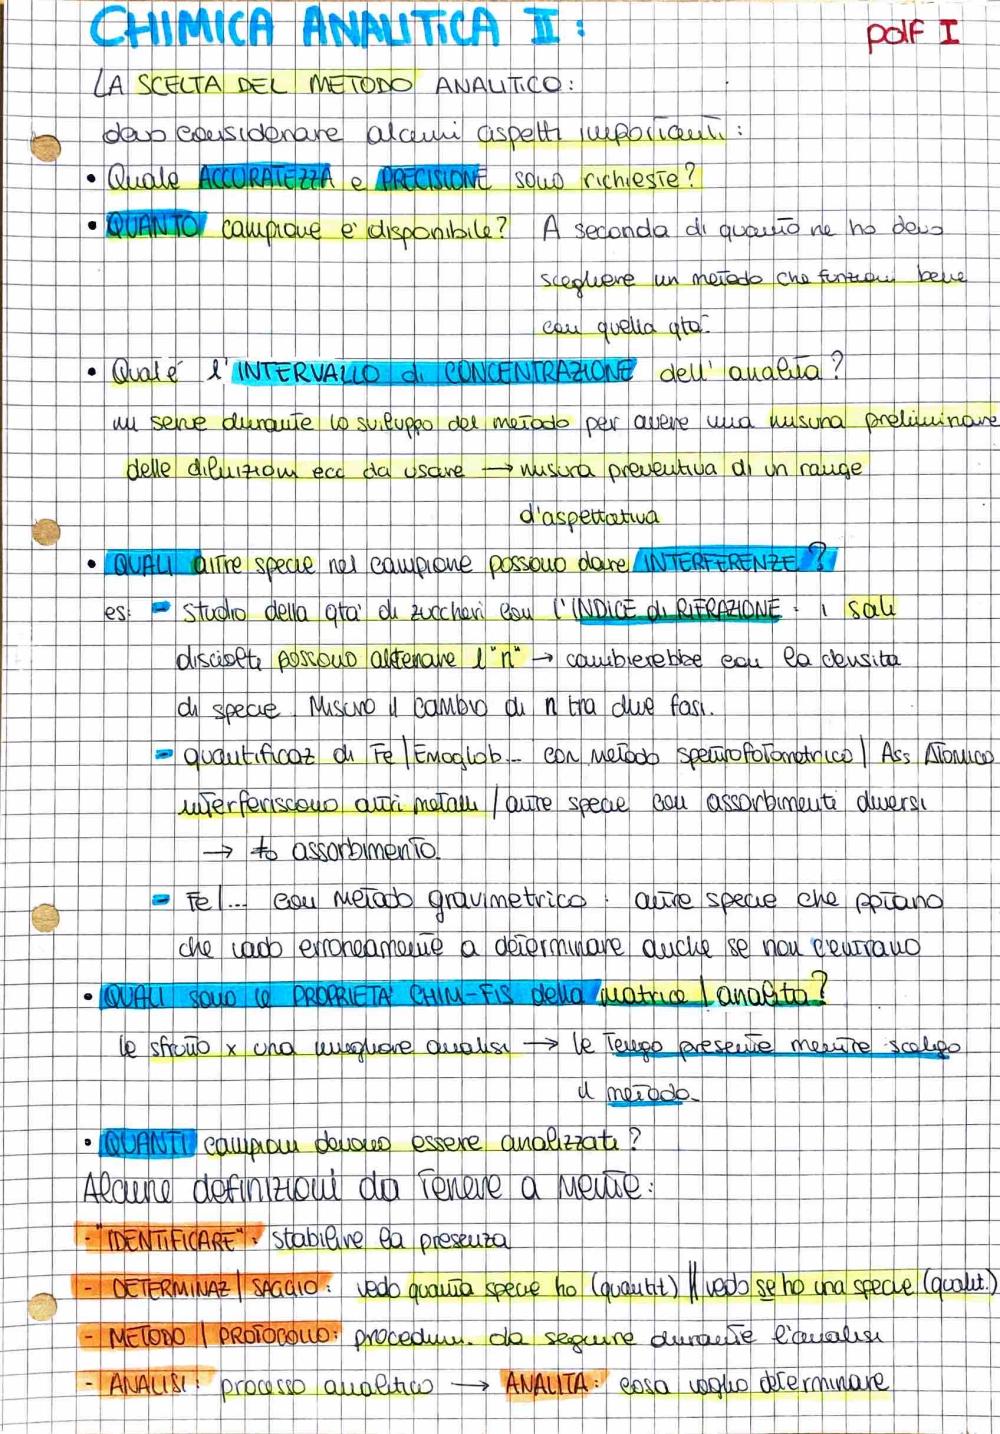 CHIMICA ANALITICA II:
pdf I
LA SCELTA DEL METODO ANALITICO:
devo considerare alcuni aspetti importanti:
• Quale ACCURATEZZA e PRECISIONE sono richieste?
• QUANTO campione e' disponibile? A seconda di quanto ne ho devo
scegliere un metodo che funzioni bene
con quella qta'
• Qual é l'INTERVALLO di CONCENTRAZIONE dell'analita?
mi serve durante lo sviluppo del metodo per avere una misura preliminare
delle diluizioni ecc da usare → misura preventiva di un range
d'aspettativa
• QUALI altre specie nel campione possono dare INTERFERENZE?
es: - studio della qta' di zuccheri con l'INDICE di RIFRAZIONE: i sali
disciolti possono alterare l'"n" → cambierebbe con la densita
di specie. Misuro il cambio di n tra due fasi.
- quantificaz di Fe|Emoglob... con metodo spettrofotometrico| Ass Atomico
interferiscono altri metalli / altre specie con assorbimenti diversi
→ assorbimento.
- Fe|... con metodo gravimetrico: altre specie che ppitano
che vado erroneamente a determinare anche se non c'entrano
• QUALI sono le PROPRIETA' CHIM-FIS della matrice | analita?
le sfrutto x una migliore analisi → le tengo presente mentre scelgo
il metodo.
• QUANTI campioni devono essere analizzati?
Alcune definizioni da tenere a mente:
- "IDENTIFICARE": stabilire la presenza
- DETERMINAZ | SAGGIO: vedo quanta specie ho (quantit) || vedo se ho una specie (qualit.)
- METODO | PROTOCOLLO: procedim. da seguire durante l'analisi
- ANALISI: processo analitico → ANALITA: cosa voglio determinare